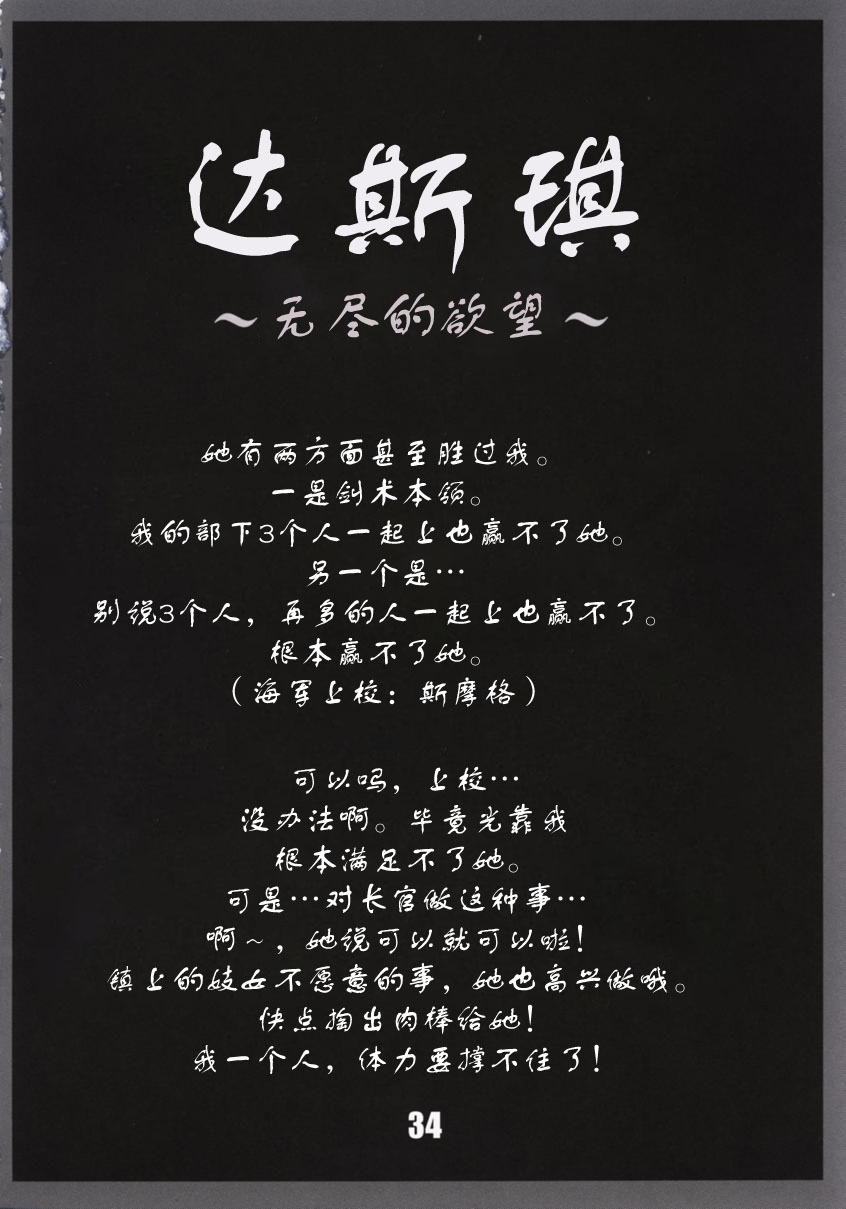 达斯琪
~无尽的欲望~
她有两方面甚至胜过我。
一是剑术本领。
我的部下3个人一起上也赢不了她。
另一个是…
别说3个人，再多的人一起上也赢不了。
根本赢不了她。
（海军上校：斯摩格）
可以吗，上校…
没办法啊。毕竟光靠我
根本满足不了她。
可是…对长官做这种事…
啊~，她说可以就可以啦！
镇上的妓女不愿意的事，她也高兴做哦。
快点掏出肉棒给她！
我一个人，体力要撑不住了！
34